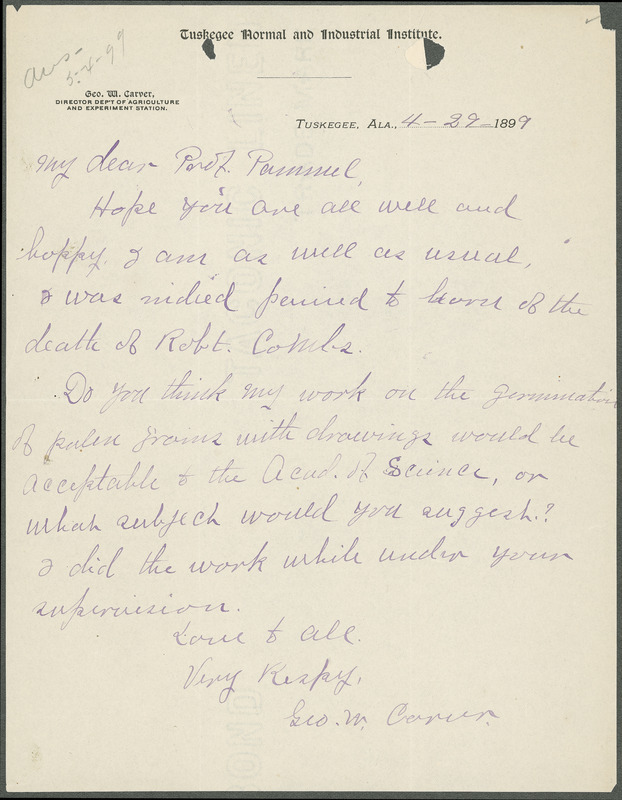 Tuskegee Normal and Industrial Institute.
ans-
5-4-99
Geo. W. Carver,
DIRECTOR DEP'T OF AGRICULTURE
AND EXPERIMENT STATION.
TUSKEGEE, ALA., 4-29-1899
My dear Prof. Pammel,
Hope you are all well and
happy. I am as well as usual,
I was indied pained to learn of the
death of Robt. Combs.
Do you think my work on the germination
of polen grains with drawings would be
acceptable to the Acad. of Science, or
what subject would you suggest.?
I did the work while under your
supervision.
Love to all.
Very Respy,
Geo. W. Carver.